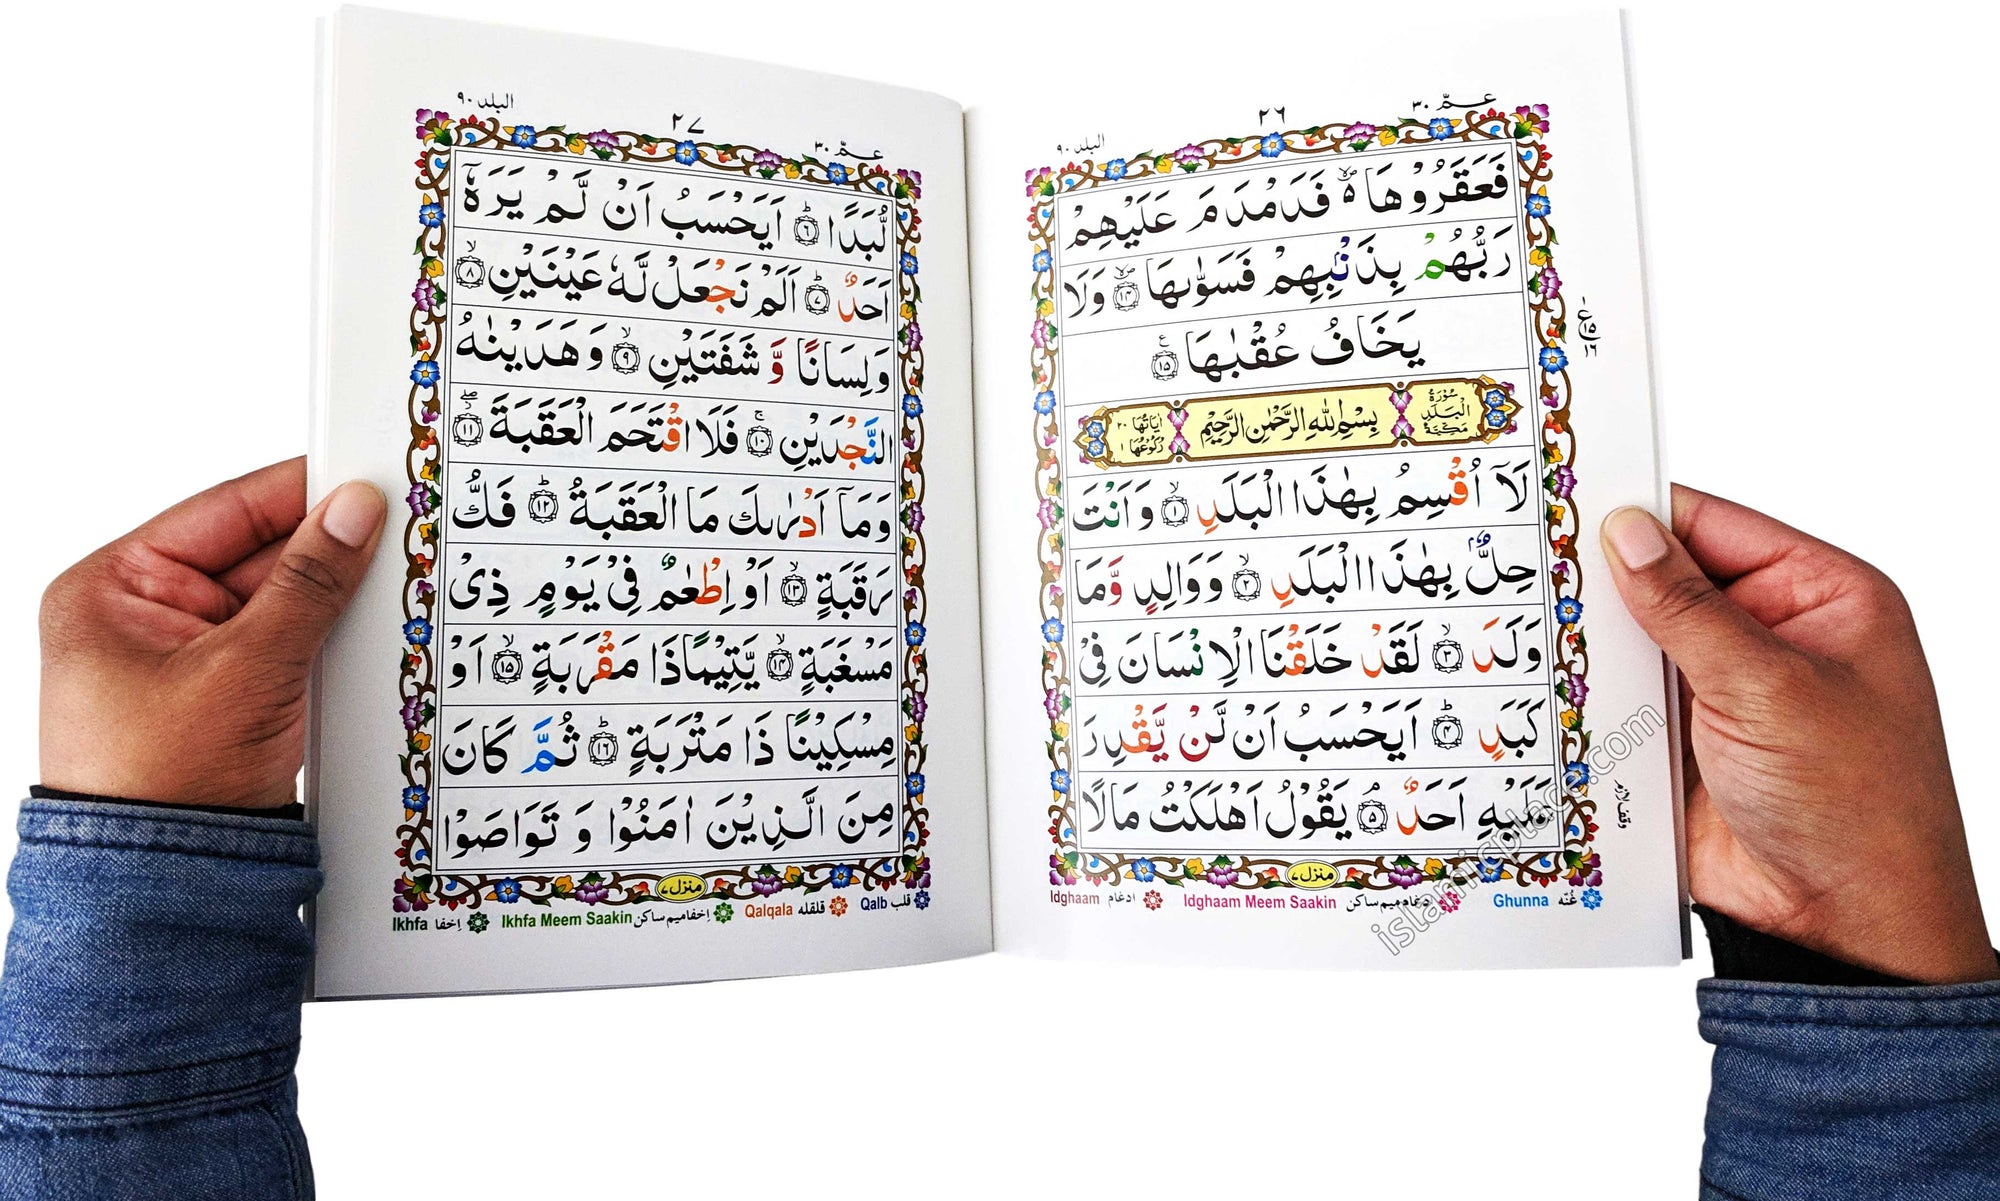 عـمّ ٣٠
٢٦
البلد ٩٠
فَعَقَرُوْهَا ۵ۙ۬ فَدَمْدَمَ عَلَيْهِمْ
رَبُّهُمْ بِذَنْۢبِهِمْ فَسَوّٰىهَا ۙ۬ ۱۴ وَلَا
يَخَافُ عُقْبٰهَا ۱۵ ع
سُوْرَةُ الْبَلَدِ مَكِّيَّةٌ
بِسْمِ اللّٰهِ الرَّحْمٰنِ الرَّحِيْمِ
اٰيَاتُهَا ٢٠ رُكُوْعُهَا ١
لَاۤ اُقْسِمُ بِهٰذَا الْبَلَدِ ۙ ۱ وَاَنْتَ
حِلٌّۢ بِهٰذَا الْبَلَدِ ۙ ۲ وَوَالِدٍ وَّمَا
وَلَدَ ۙ ۳ لَقَدْ خَلَقْنَا الْاِنْسَانَ فِىْ
كَبَدٍ ؕ ۴ اَيَحْسَبُ اَنْ لَّنْ يَّقْدِرَ
عَلَيْهِ اَحَدٌ ۘ ۵ يَقُوْلُ اَهْلَكْتُ مَالًا
ع ۱۵ ۱۶
وقف لازم
منزل ٧
Idghaam ادغام Idghaam Meem Saakin ادغام میم ساکن Ghunna غُنّه
islamicplace.com
البلد ٩٠
٢٧
عـمّ ٣٠
لُّبَدًا ؕ ۶ اَيَحْسَبُ اَنْ لَّمْ يَرَهٗۤ
اَحَدٌ ؕ ۷ اَلَمْ نَجْعَلْ لَّهٗ عَيْنَيْنِ ۙ ۸
وَلِسَانًا وَّ شَفَتَيْنِ ۙ ۹ وَهَدَيْنٰهُ
النَّجْدَيْنِ ۚ ۱۰ فَلَا اقْتَحَمَ الْعَقَبَةَ ۱۱
وَمَاۤ اَدْرٰىكَ مَا الْعَقَبَةُ ؕ ۱۲ فَكُّ
رَقَبَةٍ ۙ ۱۳ اَوْ اِطْعٰمٌ فِىْ يَوْمٍ ذِىْ
مَسْغَبَةٍ ۙ ۱۴ يَّتِيْمًا ذَا مَقْرَبَةٍ ۙ ۱۵ اَوْ
مِسْكِيْنًا ذَا مَتْرَبَةٍ ؕ ۱۶ ثُمَّ كَانَ
مِنَ الَّذِيْنَ اٰمَنُوْا وَ تَوَاصَوْا
منزل ٧
Ikhfa اِخفا Ikhfa Meem Saakin اِخفا میم ساکن Qalqala قلقله Qalb قلب